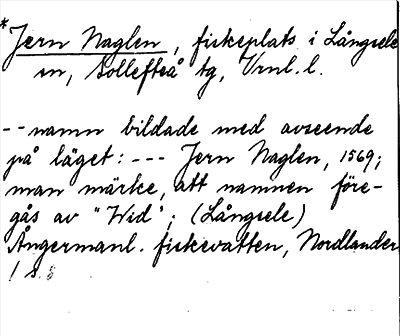 *Jern Naglen, fiskeplats i Långsele
sn, Sollefteå tg, Vrnl. l.
-- namn bildade med avseende
på läget: --- Jern Naglen, 1569;
man märke, att namnen före-
gås av "Wid"; (Långsele)
Ångermanl. fiskevatten, Nordlander
/ s. 8